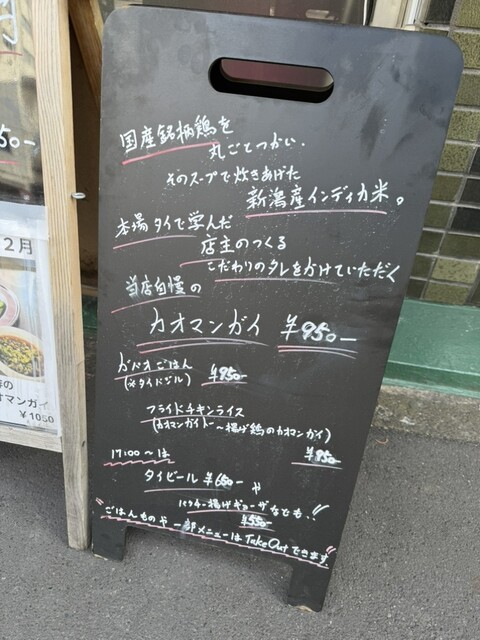 国産銘柄鶏を
丸ごとつかい、
そのスープで炊きあげた
新潟産インディカ米。
本場タイで学んだ
店主のつくる
こだわりのタレをかけていただく
当店自慢の
カオマンガイ ¥950-
ガパオごはん
(※タイバジル) ¥950-
フライドチキンライス
(カオマンガイトート 〜揚げ鶏のカオマンガイ)
¥950-
17:00〜は
タイビール ¥650- や
パクチー揚げギョーザなども!!
¥550-
"ごはんものや一部メニューはTakeOutできます"
50-
2月
オマンガイ
¥1050